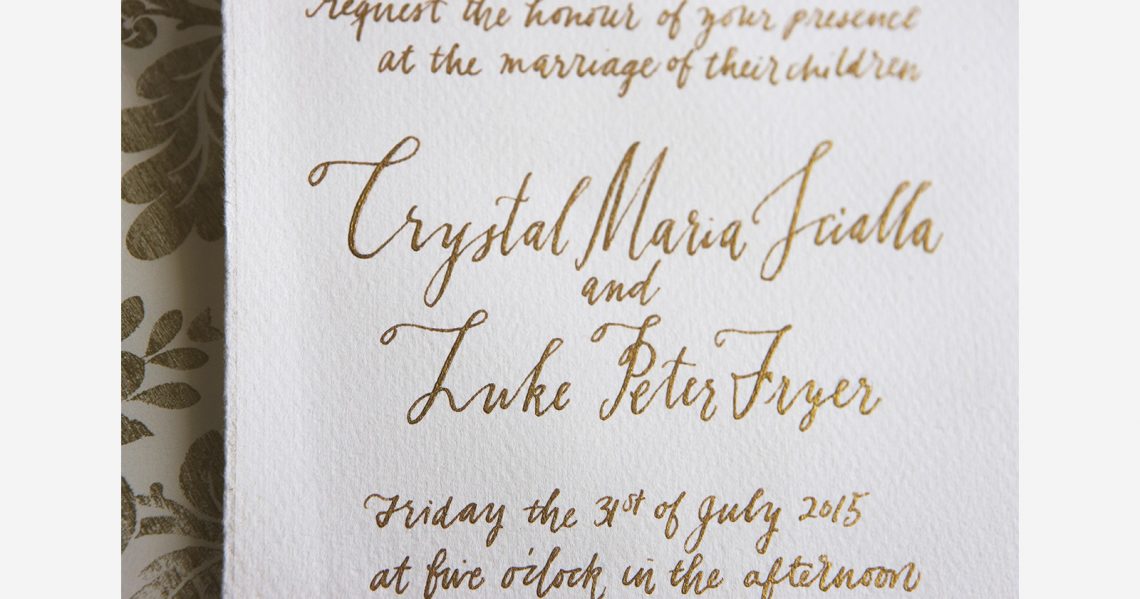 request the honour of your presence
at the marriage of their children
Crystal Maria Scialla
and
Luke Peter Fryer
Friday the 31st of July 2015
at five o'clock in the afternoon